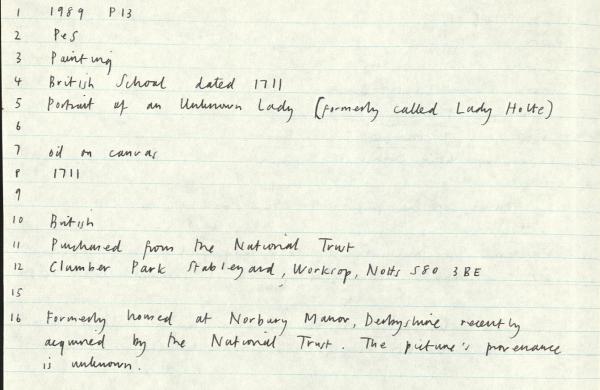 1 1989 P13
2 PeS
3 Painting
4 British School dated 1711
5 Portrait of an Unknown Lady (formerly called Lady Holte)
6
7 oil on canvas
8 1711
9
10 British
11 Purchased from the National Trust
12 Clumber Park Stableyard, Worksop, Notts S80 3BE
15
16 Formerly housed at Norbury Manor, Derbyshire recently
acquired by the National Trust. The picture's provenance
is unknown.